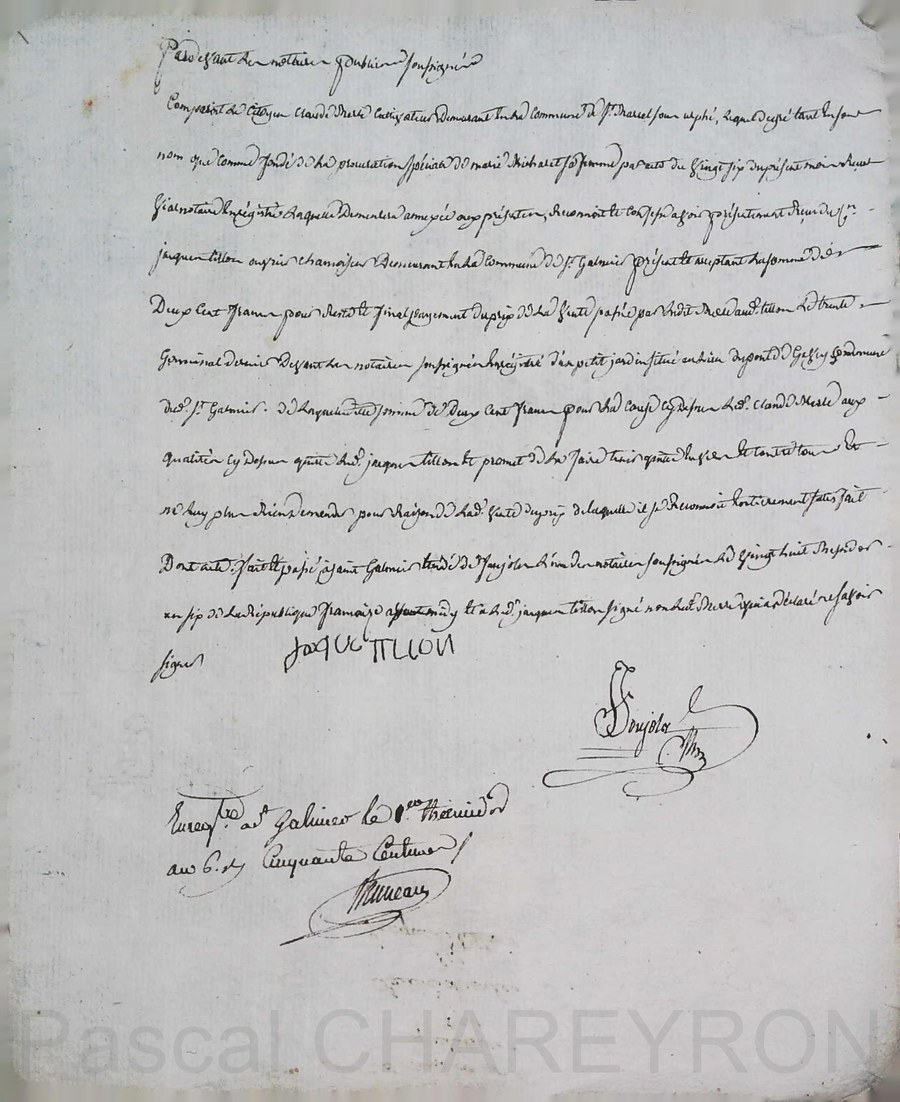 Pardevant les notaires publics soussignés
Comparoit le citoyen Claude Merle cultivateur demeurant en la commune de St. Marcel sous urphé, lequel de gré tant en son
nom que comme fondé de la procuration spéciale de marie Michalet sa femme par acte du vingt six du présent mois Reçue
notaire Enregistré laquelle demeurera annexée aux présentes, Reconnoit et Confesse avoir présentement Reçu du Cn.
jacques tillon ouvrier chamoiseur Demeurant en la commune de St. Galmier présent et acceptant la somme de
Deux Cent francs pour Reste et final payement du prix de la Vente passée par ledit Merle aud. tillon le trente
Germinal dernier Devant les notaires soussignés Enregistré d'un petit jardin situé au lieu du pont de commune
dud. St. Galmier. de laquelle somme de Deux Cent francs pour la Cause cy Dessus led. Claude Merle aux
qualités cy Dessus quitte led. jacques tillon et promet de le faire tenir quitte Envers et contre tous Et
ne luy plus Rien demander pour Raison de lad. Vente du prix de laquelle il se Reconnoit Entierement satisfait
Dont acte. fait et passé a saint Galmier étude de Ponjolas l'un des notaires soussignés le vingt huit Messidor
an six de la République françoise et a led. jacques tillon signé non led. Merle qui a déclaré ne savoir
signer
JaQUE TILLON
Ponjolas
Enregtré. a St Galmier le 1er. thermidor
an 6. R Cinquante Centimes
Bruneau
Pascal CHAREYRON